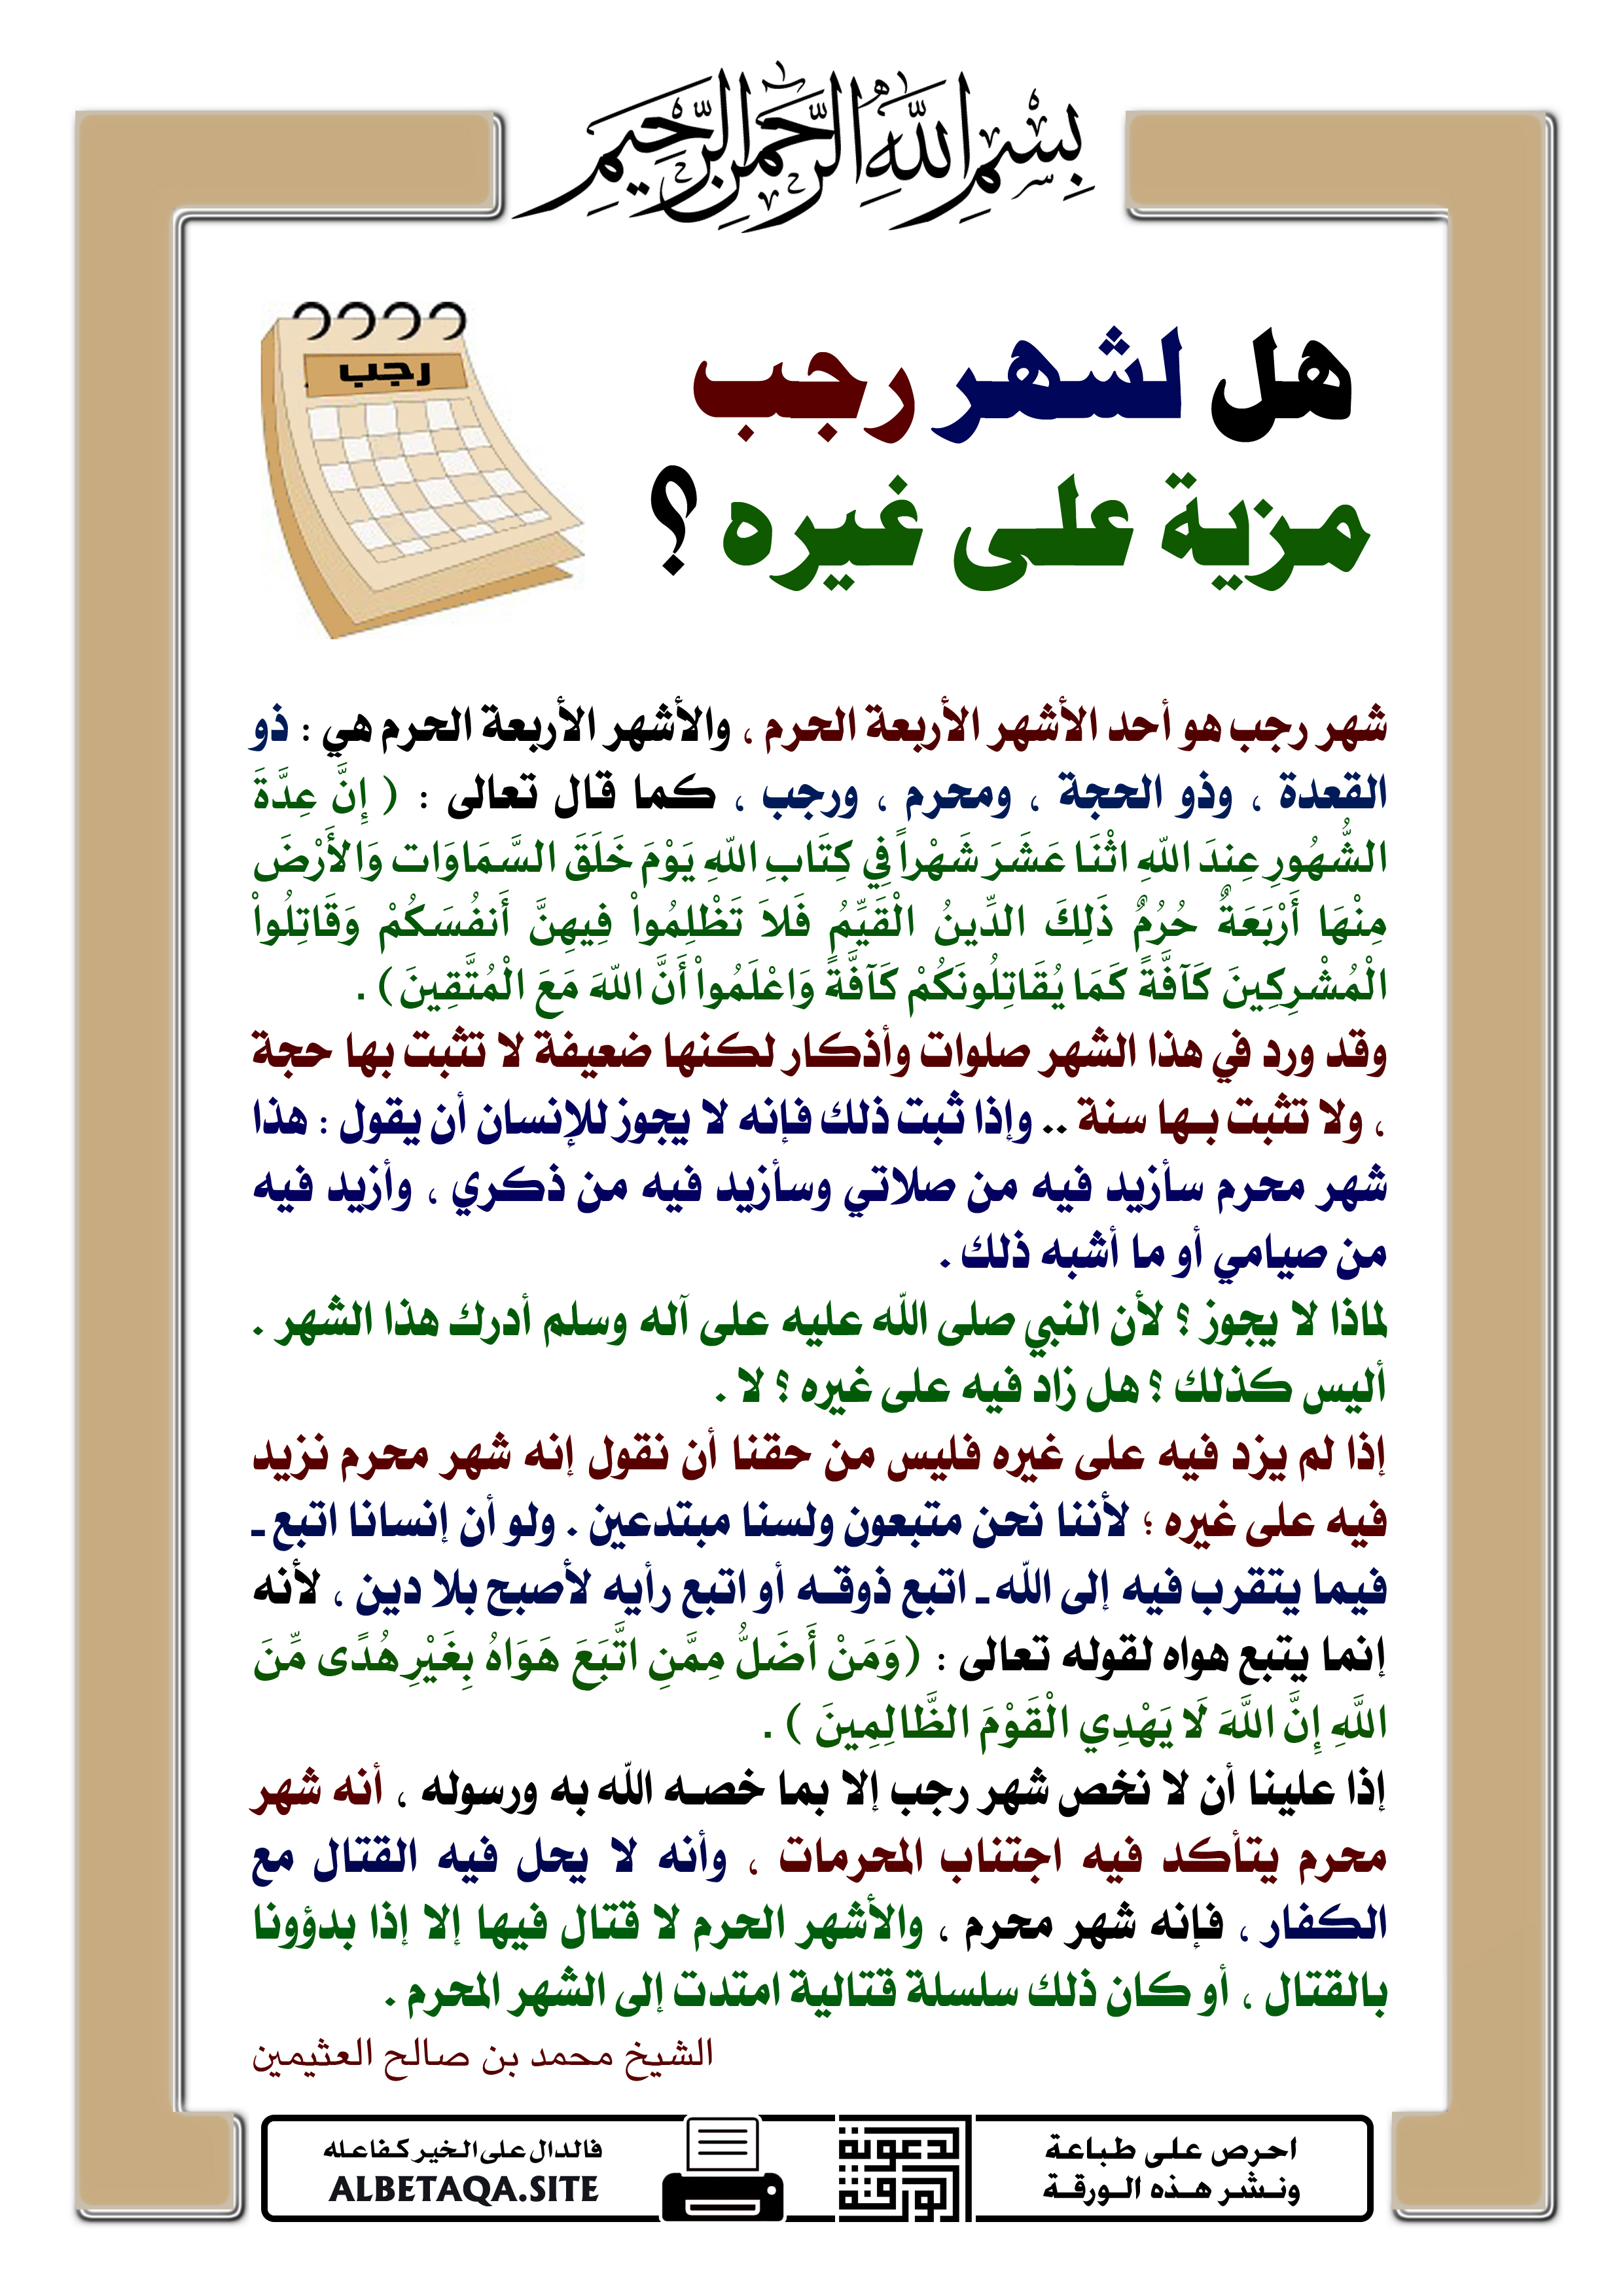 بِسْمِ اللَّهِ الرَّحْمَنِ الرَّحِيمِ
رجب
هل لشهر رجب
مزية على غيره ؟
شهر رجب هو أحد الأشهر الأربعة الحرم ، والأشهر الأربعة الحرم هي : ذو
القعدة ، وذو الحجة ، ومحرم ، ورجب ، كما قال تعالى : ( إِنَّ عِدَّةَ
الشُّهُورِ عِندَ اللهِ اثْنَا عَشَرَ شَهْراً فِي كِتَابِ اللهِ يَوْمَ خَلَقَ السَّمَاوَات وَالأَرْضَ
مِنْهَا أَرْبَعَةٌ حُرُمٌ ذَلِكَ الدِّينُ الْقَيِّمُ فَلاَ تَظْلِمُواْ فِيهِنَّ أَنفُسَكُمْ وَقَاتِلُواْ
الْمُشْرِكِينَ كَآفَّةً كَمَا يُقَاتِلُونَكُمْ كَآفَّةً وَاعْلَمُواْ أَنَّ اللهَ مَعَ الْمُتَّقِينَ ) .
وقد ورد في هذا الشهر صلوات وأذكار لكنها ضعيفة لا تثبت بها حجة
، ولا تثبت بـها سنة .. وإذا ثبت ذلك فإنه لا يجوز للإنسان أن يقول : هذا
شهر محرم سأزيد فيه من صلاتي وسأزيد فيه من ذكري ، وأزيد فيه
من صيامي أو ما أشبه ذلك .
لماذا لا يجوز ؟ لأن النبي صلى الله عليه على آله وسلم أدرك هذا الشهر .
أليس كذلك ؟ هل زاد فيه على غيره ؟ لا .
إذا لم يزد فيه على غيره فليس من حقنا أن نقول إنه شهر محرم نزيد
فيه على غيره ؛ لأننا نحن متبعون ولسنا مبتدعين . ولو أن إنسانا اتبع ـ
فيما يتقرب فيه إلى الله ـ اتبع ذوقـه أو اتبع رأيه لأصبح بلا دين ، لأنه
إنما يتبع هواه لقوله تعالى : (وَمَنْ أَضَلُّ مِمَّنِ اتَّبَعَ هَوَاهُ بِغَيْرِ هُدًى مِّنَ
اللَّهِ إِنَّ اللَّهَ لَا يَهْدِي الْقَوْمَ الظَّالِمِينَ ) .
إذا علينا أن لا نخص شهر رجب إلا بما خصـه الله به ورسوله ، أنه شهر
محرم يتأكد فيه اجتناب المحرمات ، وأنه لا يحل فيه القتال مع
الكفار ، فإنه شهر محرم ، والأشهر الحرم لا قتال فيها إلا إذا بدؤونا
بالقتال ، أو كان ذلك سلسلة قتالية امتدت إلى الشهر المحرم .
الشيخ محمد بن صالح العثيمين
احرص على طباعة
ونـشـر هـذه الـورقـة
الورقة
الدعوية
فالدال على الخير كفاعله
ALBETAQA.SITE